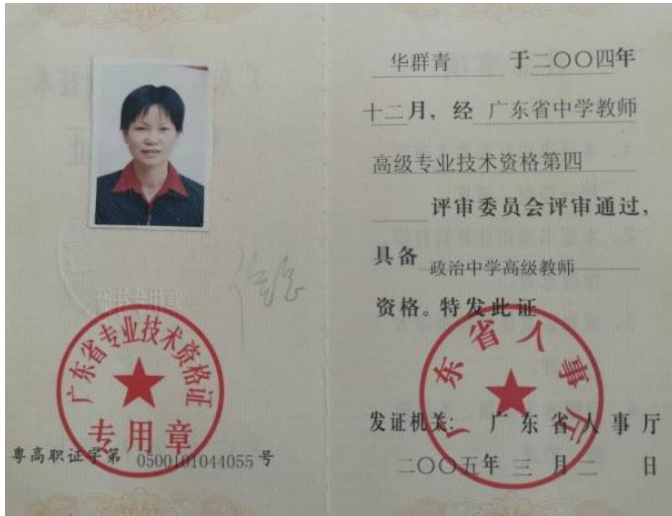 广东省专业技术资格证
专用章
粤高职证字第 0500101044055 号
华群青 于二〇〇四年
十二月，经 广东省中学教师
高级专业技术资格第四
评审委员会评审通过，
具备 政治中学高级教师
资格。特发此证
广东省人事厅
发证机关： 广东省人事厅
二〇〇五年 三 月 二 日